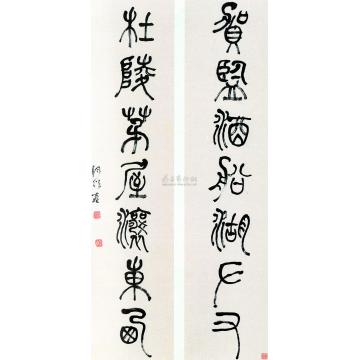 賀監酒船湖左右
杜陵茅屋瀼東西